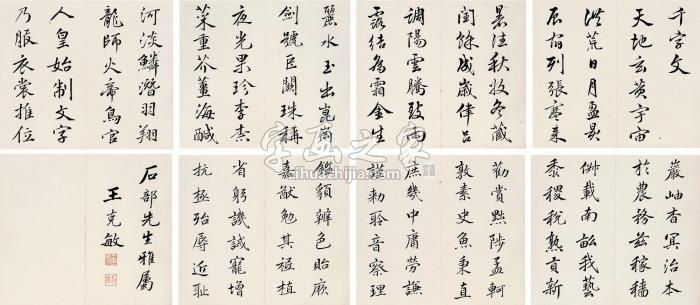 千字文
天地玄黃宇宙
洪荒日月盈昃
辰宿列張寒來
暑往秋收冬藏
閏餘成歲律呂
調陽雲騰致雨
露結為霜金生
麗水玉出崑岡
劍號巨闕珠稱
夜光果珍李柰
菜重芥薑海鹹
河淡鱗潛羽翔
龍師火帝鳥官
人皇始制文字
乃服衣裳推位
巖岫杳冥治本
於農務茲稼穡
俶載南畝我藝
黍稷稅熟貢新
勸賞黜陟孟軻
敦素史魚秉直
庶幾中庸勞謙
謹勅聆音察理
鑑貌辨色貽厥
嘉猷勉其祗植
省躬譏誡寵增
抗極殆辱近恥
石部先生雅屬
王克敏
字画之家
zihuazhijia.com